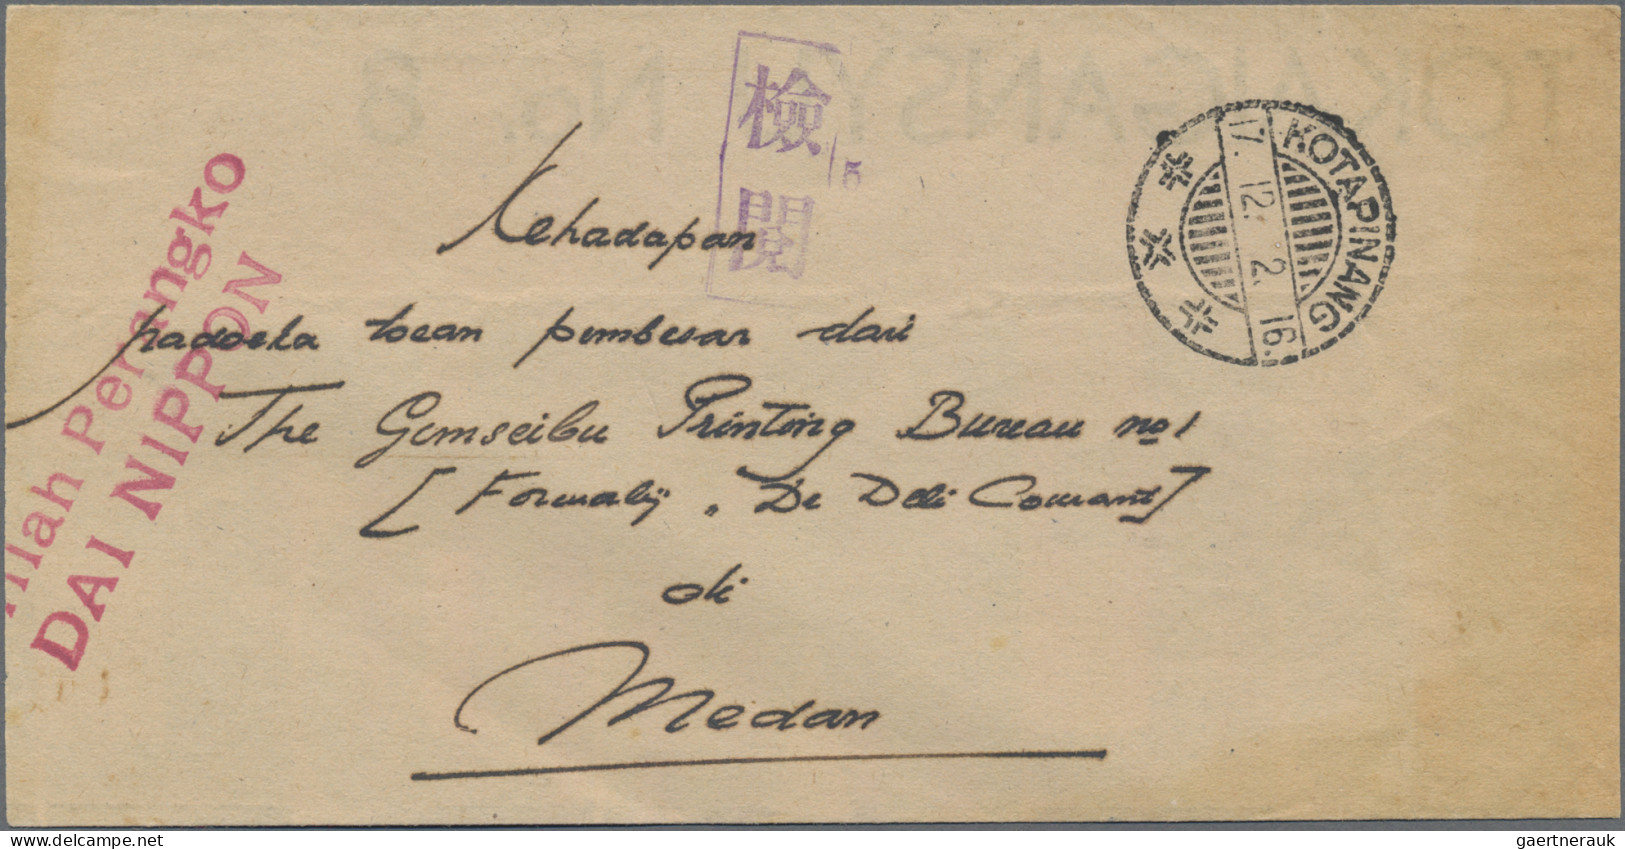 TOKAIGANSYU No. 8
檢閲
5
KOTAPINANG
17. 12. 2. 16.
Perangko
DAI NIPPON
Kehadapan
padoeka toean pembesar dari
The Gunseibu Printing Bureau no 1
[Formalij „ De Deli Courant]
di
Medan
gaertnerauk